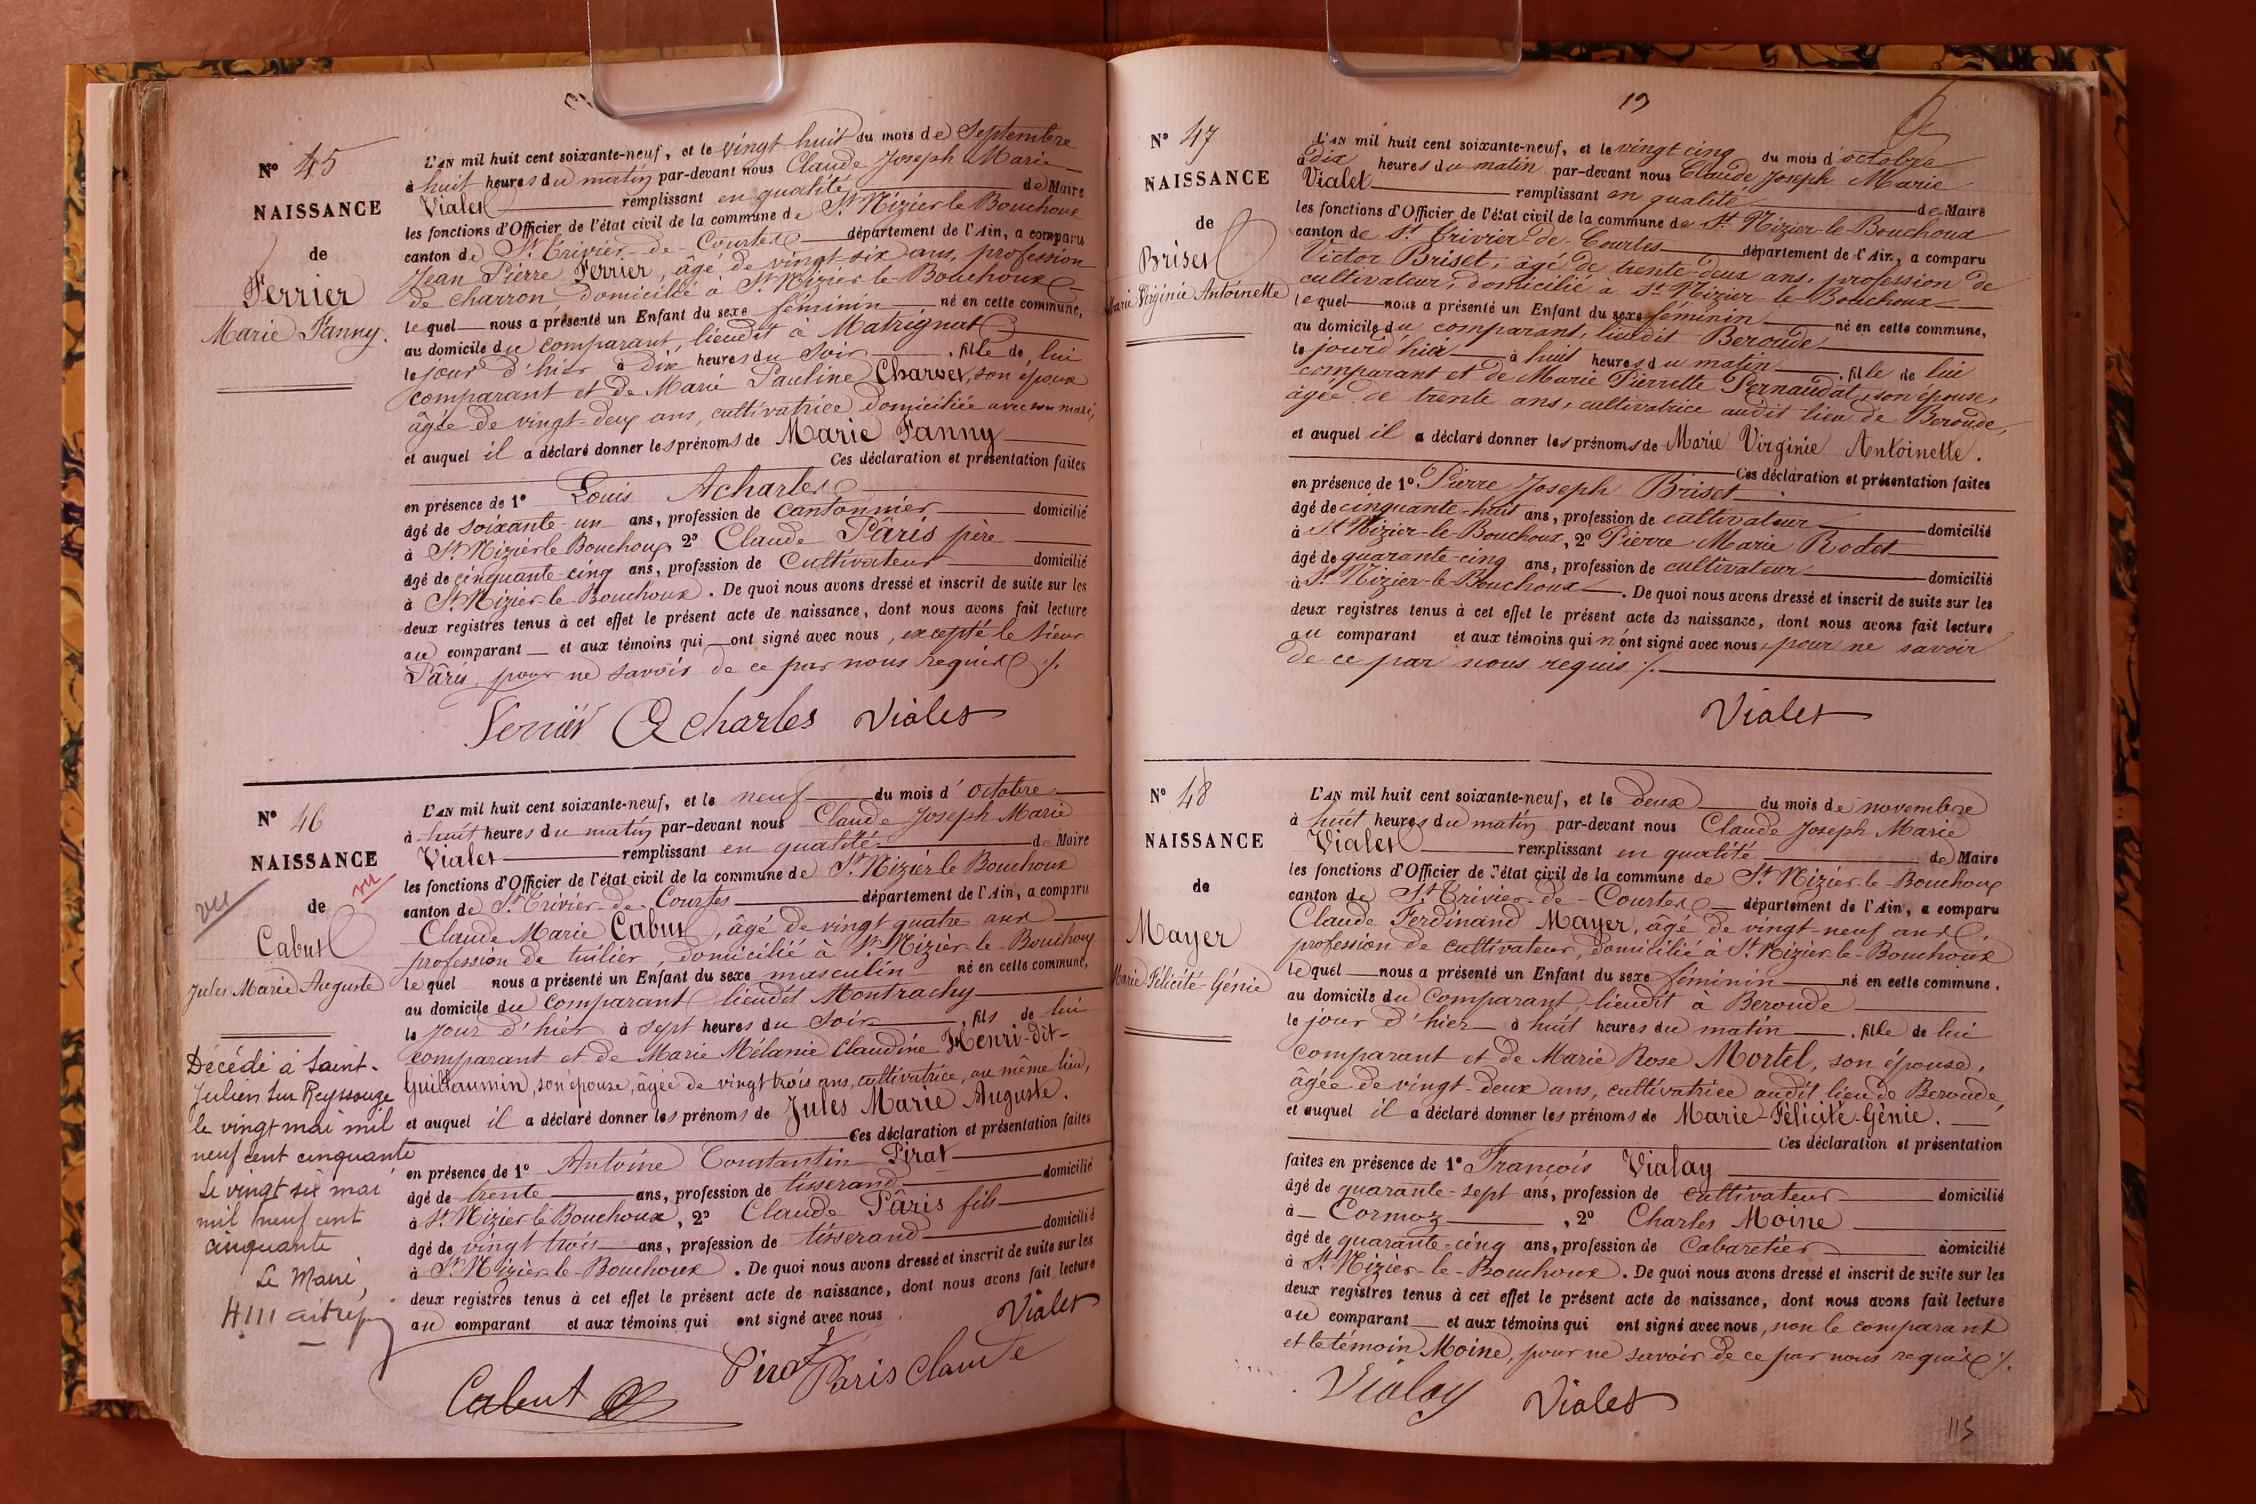 N° 45
NAISSANCE
de
Ferrier
Marie Fanny.
L'AN mil huit cent soixante-neuf, et le vingt huit du mois de Septembre
à huit heures du matin par-devant nous Claude Joseph Marie
Vialet remplissant en qualité de Maire
les fonctions d'Officier de l'état civil de la commune de St Nizier le Bouchoux
canton de St Trivier-de-Courtes département de l'Ain, a comparu
Jean Pierre Ferrier, âgé de vingt-six ans, profession
de charron, domicilié à St Nizier le Bouchoux
lequel nous a présenté un Enfant du sexe féminin né en cette commune,
au domicile du comparant, lieudit à Matrignat
le jour d'hier à dix heures du soir, fille de lui
comparant et de Marie Pauline Charvet, son épouse
âgée de vingt-deux ans, cultivatrice domiciliée avec son mari,
et auquel il a déclaré donner les prénoms de Marie Fanny
Ces déclaration et présentation faites
en présence de 1° Louis Acharles
âgé de soixante-un ans, profession de cantonnier domicilié
à St Nizier le Bouchoux, 2° Claude Pâris père
âgé de cinquante-cinq ans, profession de Cultivateur domicilié
à St Nizier-le-Bouchoux. De quoi nous avons dressé et inscrit de suite sur les
deux registres tenus à cet effet le présent acte de naissance, dont nous avons fait lecture
au comparant et aux témoins qui ont signé avec nous, excepté le sieur
Pâris, pour ne savoir de ce par nous requis ./.
Ferrier Acharles Vialet
N° 46
NAISSANCE
vu
vu
de
Cabut
Jules Marie Auguste
Décédé à Saint-
Julien sur Reyssouze
le vingt mai mil
neuf cent cinquante
Le vingt six mai
mil neuf cent
cinquante
Le Maire,
L'AN mil huit cent soixante-neuf, et le neuf du mois d'octobre
à huit heures du matin par-devant nous Claude Joseph Marie
Vialet remplissant en qualité de Maire
les fonctions d'Officier de l'état civil de la commune de St Nizier le Bouchoux
canton de St Trivier-de-Courtes département de l'Ain, a comparu
Claude Marie Cabut, âgé de vingt quatre ans
profession de tuilier, domicilié à St Nizier-le-Bouchoux
lequel nous a présenté un Enfant du sexe masculin né en cette commune,
au domicile du comparant lieudit Montrachy
le jour d'hier à sept heures du soir, fils de lui
comparant et de Marie Mélanie Claudine Henri-dit-
Guillaumin, son épouse, âgée de vingt trois ans, cultivatrice, au même lieu,
et auquel il a déclaré donner les prénoms de Jules Marie Auguste.
Ces déclaration et présentation faites
en présence de 1° Antoine Constantin Pirat
âgé de trente ans, profession de tisserand domicilié
à St Nizier le Bouchoux, 2° Claude Pâris fils
âgé de vingt trois ans, profession de tisserand domicilié
à St Nizier-le-Bouchoux. De quoi nous avons dressé et inscrit de suite sur les
deux registres tenus à cet effet le présent acte de naissance, dont nous avons fait lecture
au comparant et aux témoins qui ont signé avec nous.
Vialet
Cabut Pirat Paris Claude
19
N° 47
NAISSANCE
de
Briset
Marie Virginie Antoinette
L'AN mil huit cent soixante-neuf, et le vingt cinq du mois d'octobre
à dix heures du matin par-devant nous Claude Joseph Marie
Vialet remplissant en qualité de Maire
les fonctions d'Officier de l'état civil de la commune de St Nizier-le-Bouchoux
canton de St Trivier-de-Courtes département de l'Ain, a comparu
Victor Briset, âgé de trente-deux ans, profession de
cultivateur, domicilié à St Nizier-le-Bouchoux
lequel nous a présenté un Enfant du sexe féminin né en cette commune,
au domicile du comparant, lieudit Beroude
le jourd'hui à huit heures du matin, fille de lui
comparant et de Marie Pierrette Pernaudat, son épouse,
âgée de trente ans, cultivatrice audit lieu de Beroude,
et auquel il a déclaré donner les prénoms de Marie Virginie Antoinette.
Ces déclaration et présentation faites
en présence de 1° Pierre Joseph Briset
âgé de cinquante-huit ans, profession de cultivateur domicilié
à St Nizier-le-Bouchoux, 2° Pierre Marie Rodet
âgé de quarante-cinq ans, profession de cultivateur domicilié
à St Nizier-le-Bouchoux. De quoi nous avons dressé et inscrit de suite sur les
deux registres tenus à cet effet le présent acte de naissance, dont nous avons fait lecture
au comparant et aux témoins qui n'ont signé avec nous, pour ne savoir
de ce par nous requis ./.
Vialet
N° 48
NAISSANCE
de
Mayer
Marie-Félicité-Génie
L'AN mil huit cent soixante-neuf, et le deux du mois de novembre
à huit heures du matin par-devant nous Claude Joseph Marie
Vialet remplissant en qualité de Maire
les fonctions d'Officier de l'état civil de la commune de St Nizier-le-Bouchoux
canton de St Trivier-de-Courtes département de l'Ain, a comparu
Claude Ferdinand Mayer, âgé de vingt-neuf ans,
profession de cultivateur, domicilié à St Nizier-le-Bouchoux
lequel nous a présenté un Enfant du sexe féminin né en cette commune,
au domicile du comparant lieudit à Beroude
le jour d'hier à huit heures du matin, fille de lui
comparant et de Marie Rose Mortel, son épouse,
âgée de vingt-deux ans, cultivatrice audit lieu de Beroude,
et auquel il a déclaré donner les prénoms de Marie-Félicité-Génie.
Ces déclaration et présentation
faites en présence de 1° François Vialay
âgé de quarante-sept ans, profession de cultivateur domicilié
à Cormoz, 2° Charles Moine
âgé de quarante-cinq ans, profession de Cabaretier domicilié
à St Nizier-le-Bouchoux. De quoi nous avons dressé et inscrit de suite sur les
deux registres tenus à cet effet le présent acte de naissance, dont nous avons fait lecture
au comparant et aux témoins qui ont signé avec nous, non le comparant
et le témoin Moine, pour ne savoir de ce par nous requis ./.
Vialay Vialet
115